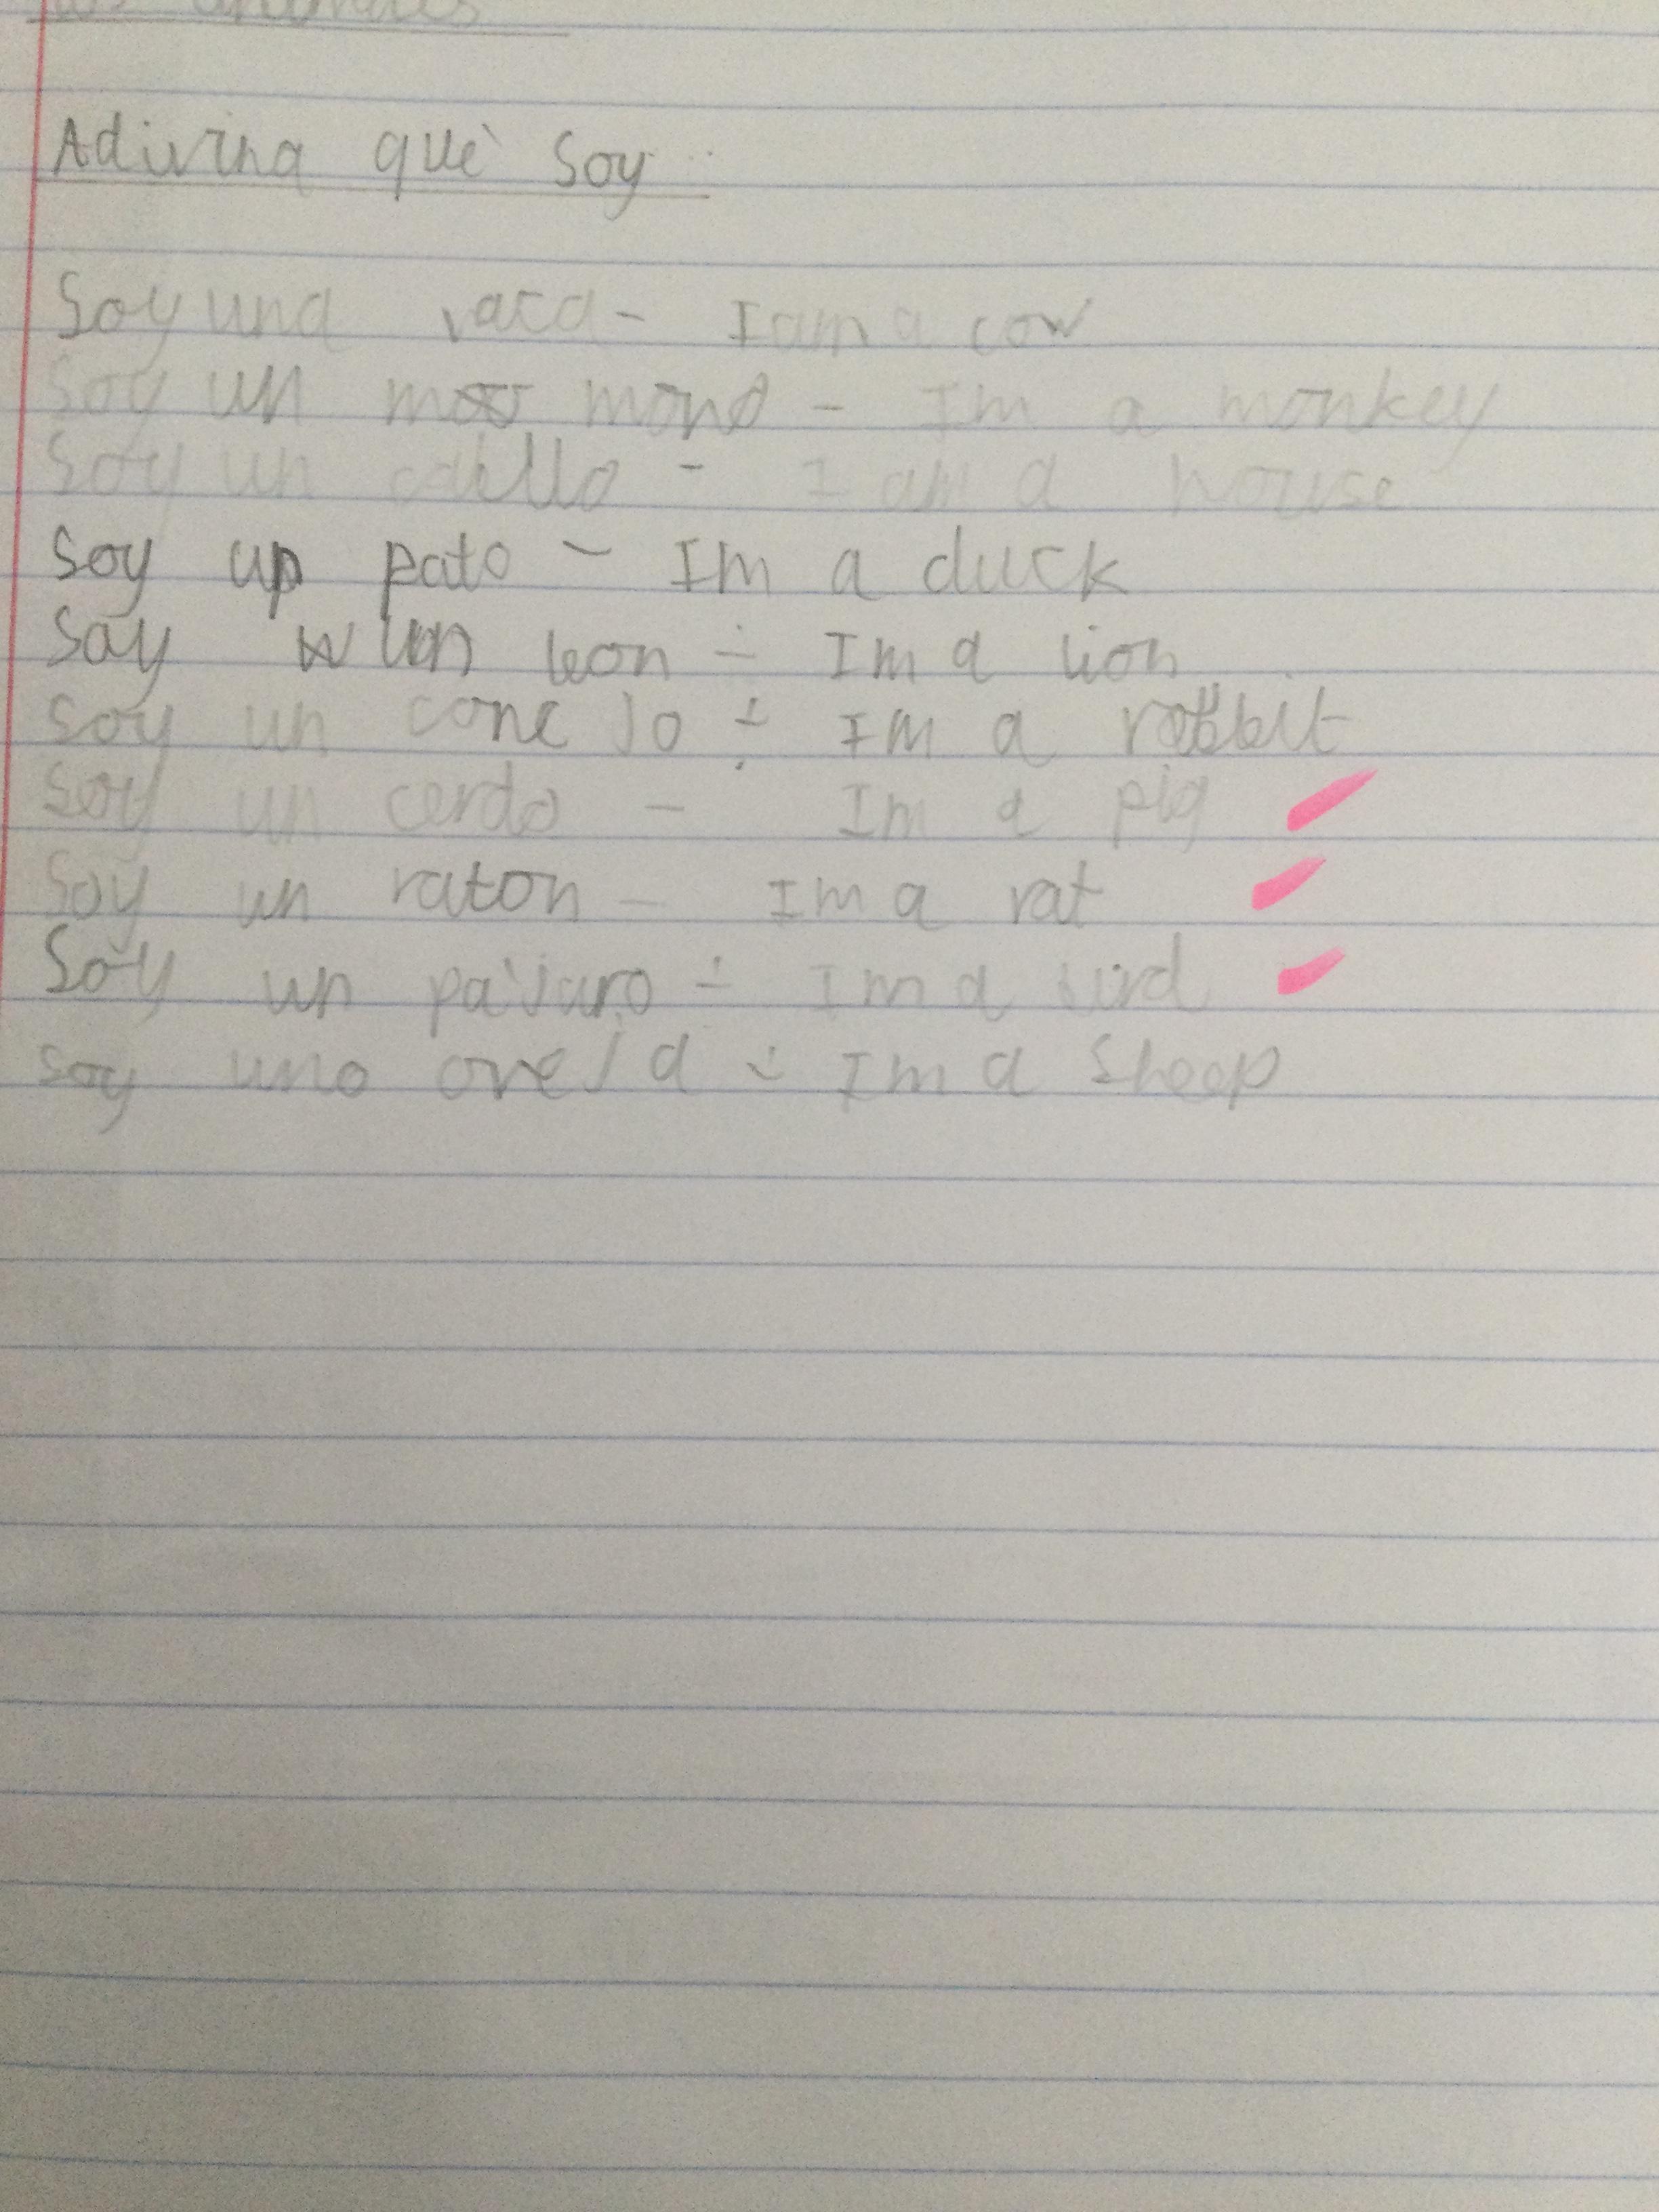 Adivina què soy
Soy una vaca - I am a cow
Soy un mono - Im a monkey
Soy un - I am a
Soy un pato - Im a duck
Soy un leon - Im a lion
Soy un cone jo - Im a rabbit
Soy un cerdo - Im a pig
Soy un raton - Im a rat
Soy un pàjaro - Im a bird
Soy uno oveja - Im a sheep